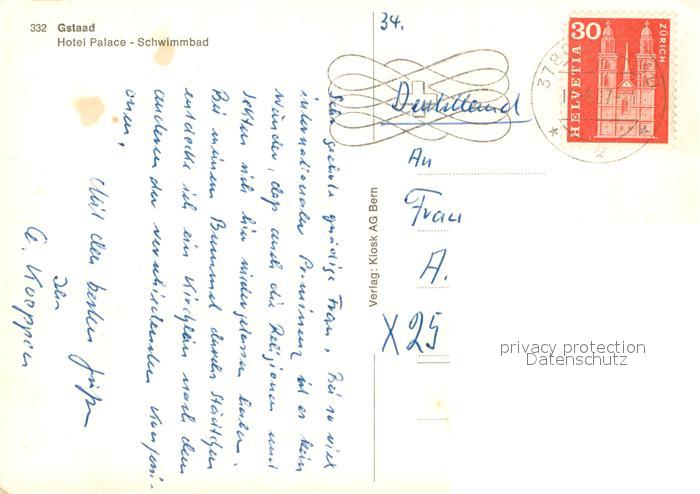 332 Gstaad
Hotel Palace - Schwimmbad
34.
HELVETIA
30
ZÜRICH
3780
Deutschland
An
Frau
A.
X25
Verlag: Kiosk AG Bern
privacy protection
Datenschutz
Sehr geehrte gnädige Frau, Bei so viel
internationaler Prominenz ist es kein
Wunder, daß auch die Religionen und
Sekten sich hier niedergelassen haben.
Bei meinem Bummel durchs Städtchen
entdecke ich ein Kirchlein nach dem
anderen der verschiedensten Konfessi-
onen.
Mit den besten Grüßen
Ihr